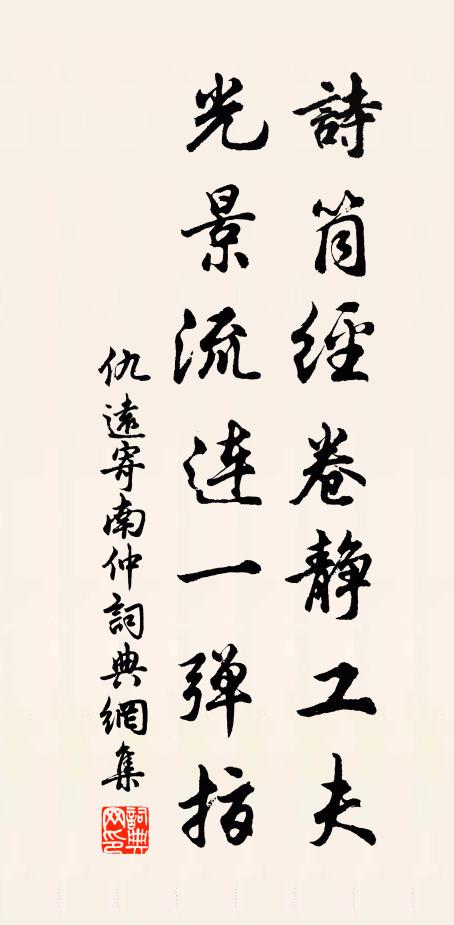 詩筒經卷静工夫
光景流連一彈指
仇遠寄南仲詞典網集
詞典網印